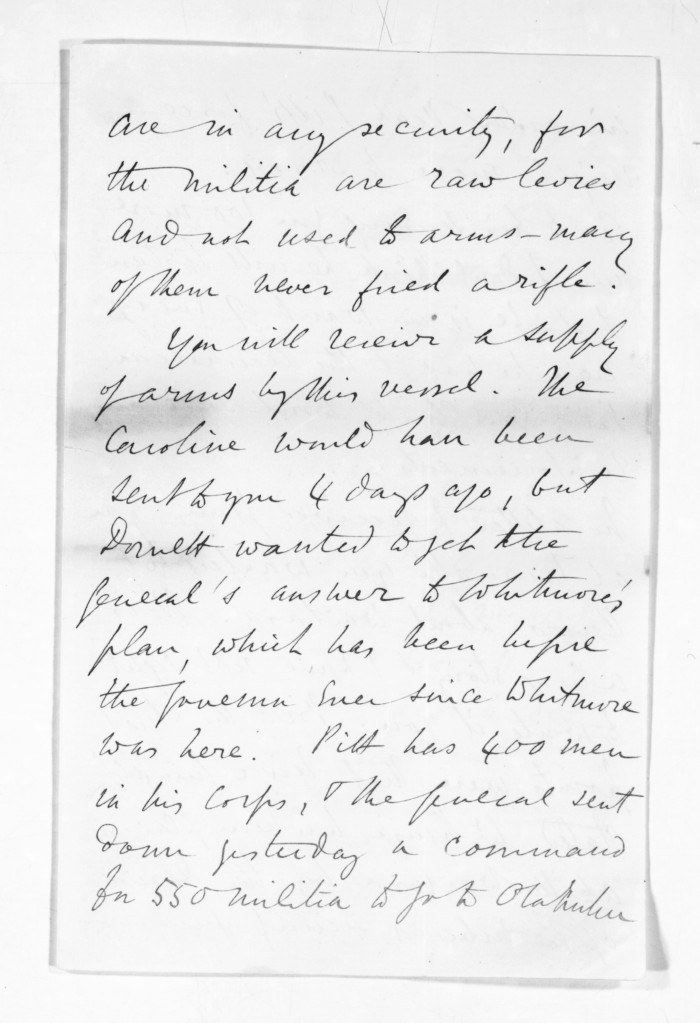 are in any security, for
the militia are raw levies
and not used to arms - many
of them never fired a rifle.
You will receive a supply
of arms by this vessel. The
Caroline would have been
sent to you 4 days ago, but
Domett wanted to get the
General's answer to Whitmore's
plan, which has been before
the Governor ever since Whitmore
was here. Pitt has 400 men
in his Corps, & the General sent
down yesterday a command
for 550 militia to go to Otahuhu